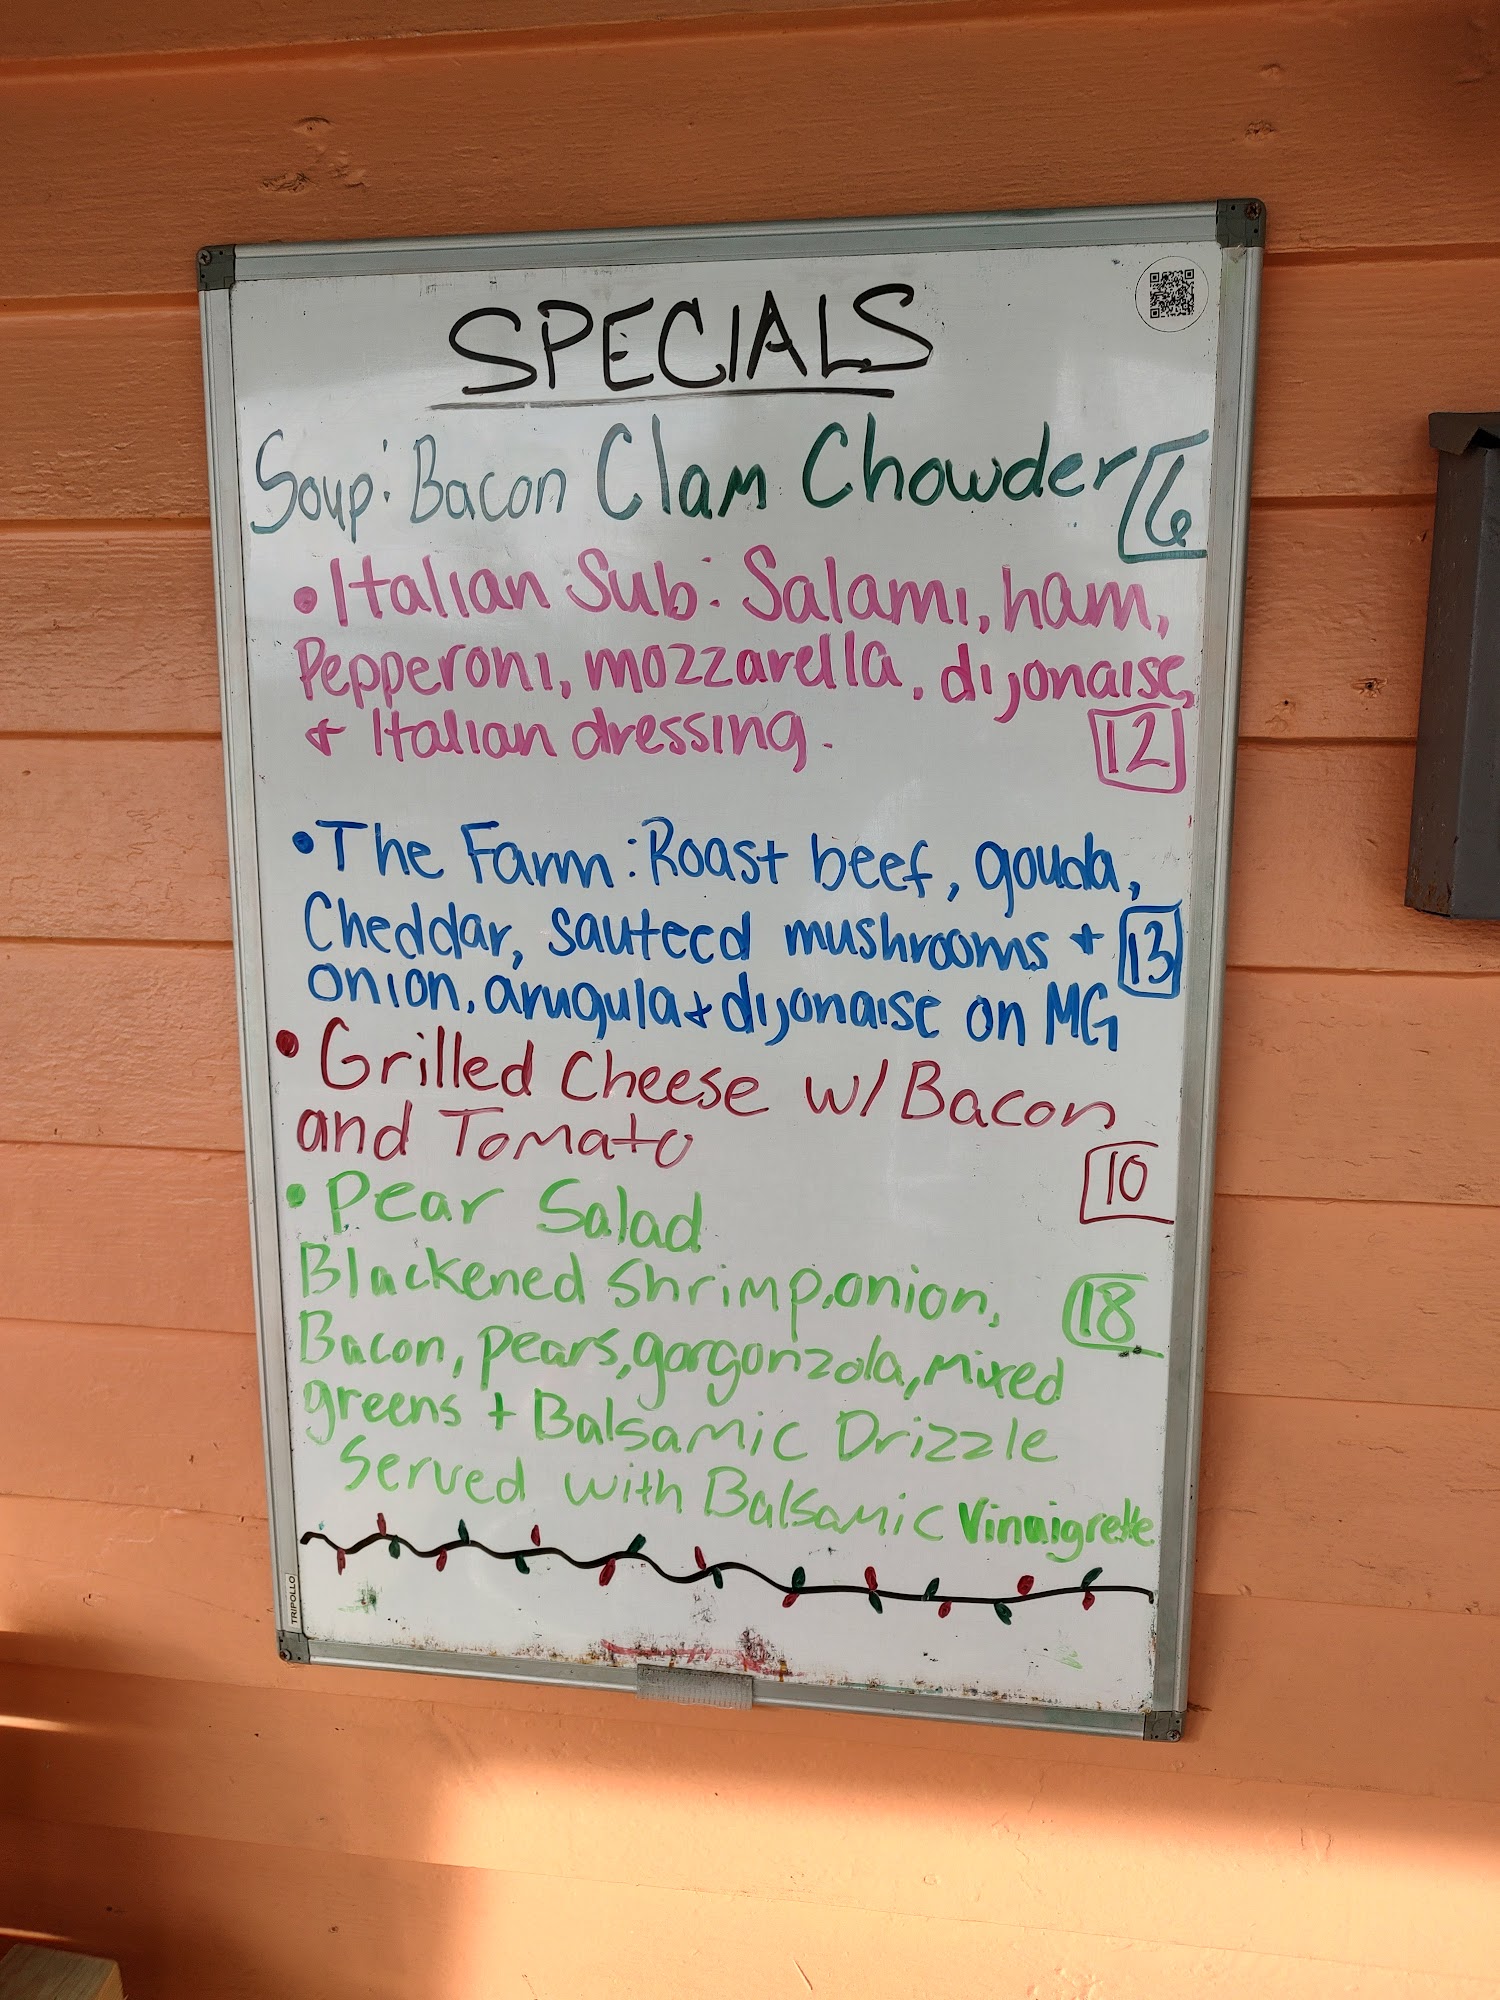 SPECIALS
Soup: Bacon Clam Chowder 6
• Italian Sub: Salami, ham,
Pepperoni, mozzarella, dijonaise,
+ Italian dressing. 12
• The Farm: Roast beef, gouda,
Cheddar, sauteed mushrooms + 13
onion, arugula + dijonaise on MG
• Grilled Cheese w/ Bacon
and Tomato 10
• Pear Salad
Blackened Shrimp, onion, 18
Bacon, pears, gorgonzola, mixed
greens + Balsamic Drizzle
Served with Balsamic Vinaigrette
TRIPOLLO